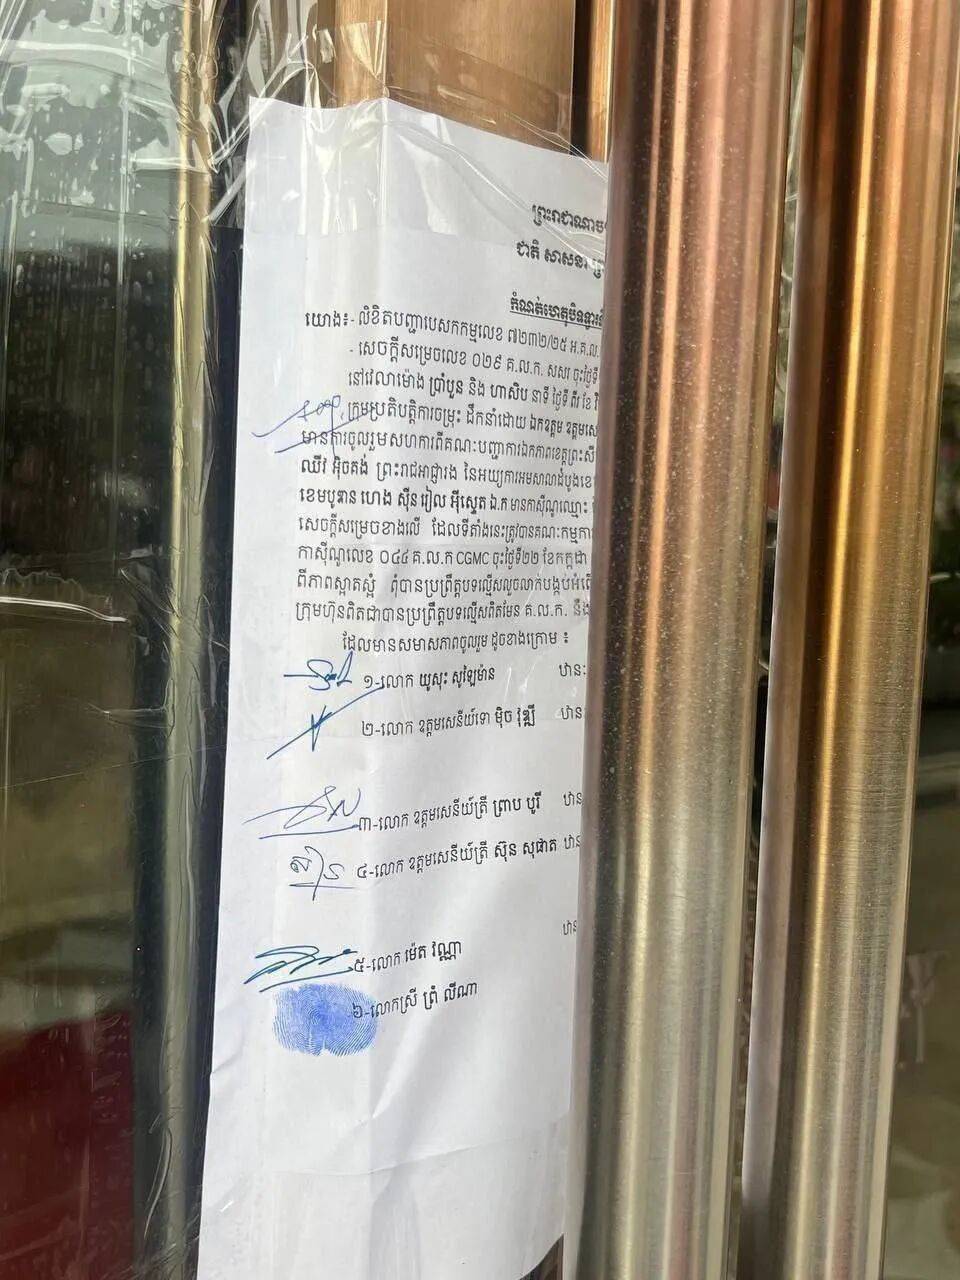 ព្រះរាជាណាច
ជាតិ សាសនា ព្រ
កំណត់ហេតុបិទទ្វារ
យោង៖- លិខិតបញ្ជាបេសកកម្មលេខ ៧២៣២/២៥ អ.គ.ល.
- សេចក្តីសម្រេចលេខ ០២៩ គ.ល.ក. សសរ ចុះថ្ងៃទី
នៅវេលាម៉ោង ប្រាំបួន និង ហាសិប នាទី ថ្ងៃទី ពីរ ខែ វិ
ក្រុមប្រតិបត្តិការចម្រុះ ដឹកនាំដោយ ឯកឧត្តម ឧត្តមសេ
មានការចូលរួមសហការពីគណៈបញ្ជាការឯកភាពខេត្តព្រះសី
ឈីវ អ៊ិចគង់ ព្រះរាជអាជ្ញារង នៃអយ្យការអមសាលាដំបូងខេ
ខេមបូឌាន ហេង ស៊ីន រៀល អ៊ីស្ទេត ឯ.ក មានកាស៊ីណូឈ្មោះ
សេចក្តីសម្រេចខាងលើ ដែលទីតាំងនេះត្រូវបានគណៈកម្មកា
កាស៊ីណូលេខ ០៤៤ គ.ល.ក CGMC ចុះថ្ងៃទី២២ ខែកក្កដា
ពីភាពស្អាតស្អំ ពុំបានប្រព្រឹត្តបទល្មើសលួចលាក់បង្កប់អំពើ
ក្រុមហ៊ុនពិតជាបានប្រព្រឹត្តបទល្មើសពិតមែន គ.ល.ក. នឹង
ដែលមានសមាសភាពចូលរួម ដូចខាងក្រោម ៖
១-លោក យូសុះ សូឡៃម៉ាន ឋានៈ
២-លោក ឧត្តមសេនីយ៍ទោ ម៉ិច វុឌ្ឍី ឋាន
៣-លោក ឧត្តមសេនីយ៍ត្រី ព្រាប បូរី ឋាន
៤-លោក ឧត្តមសេនីយ៍ត្រី ស៊ុន សុផាត ឋាន
៥-លោក ម៉េត វណ្ណា ឋាន
៦-លោកស្រី ព្រំ លីណា